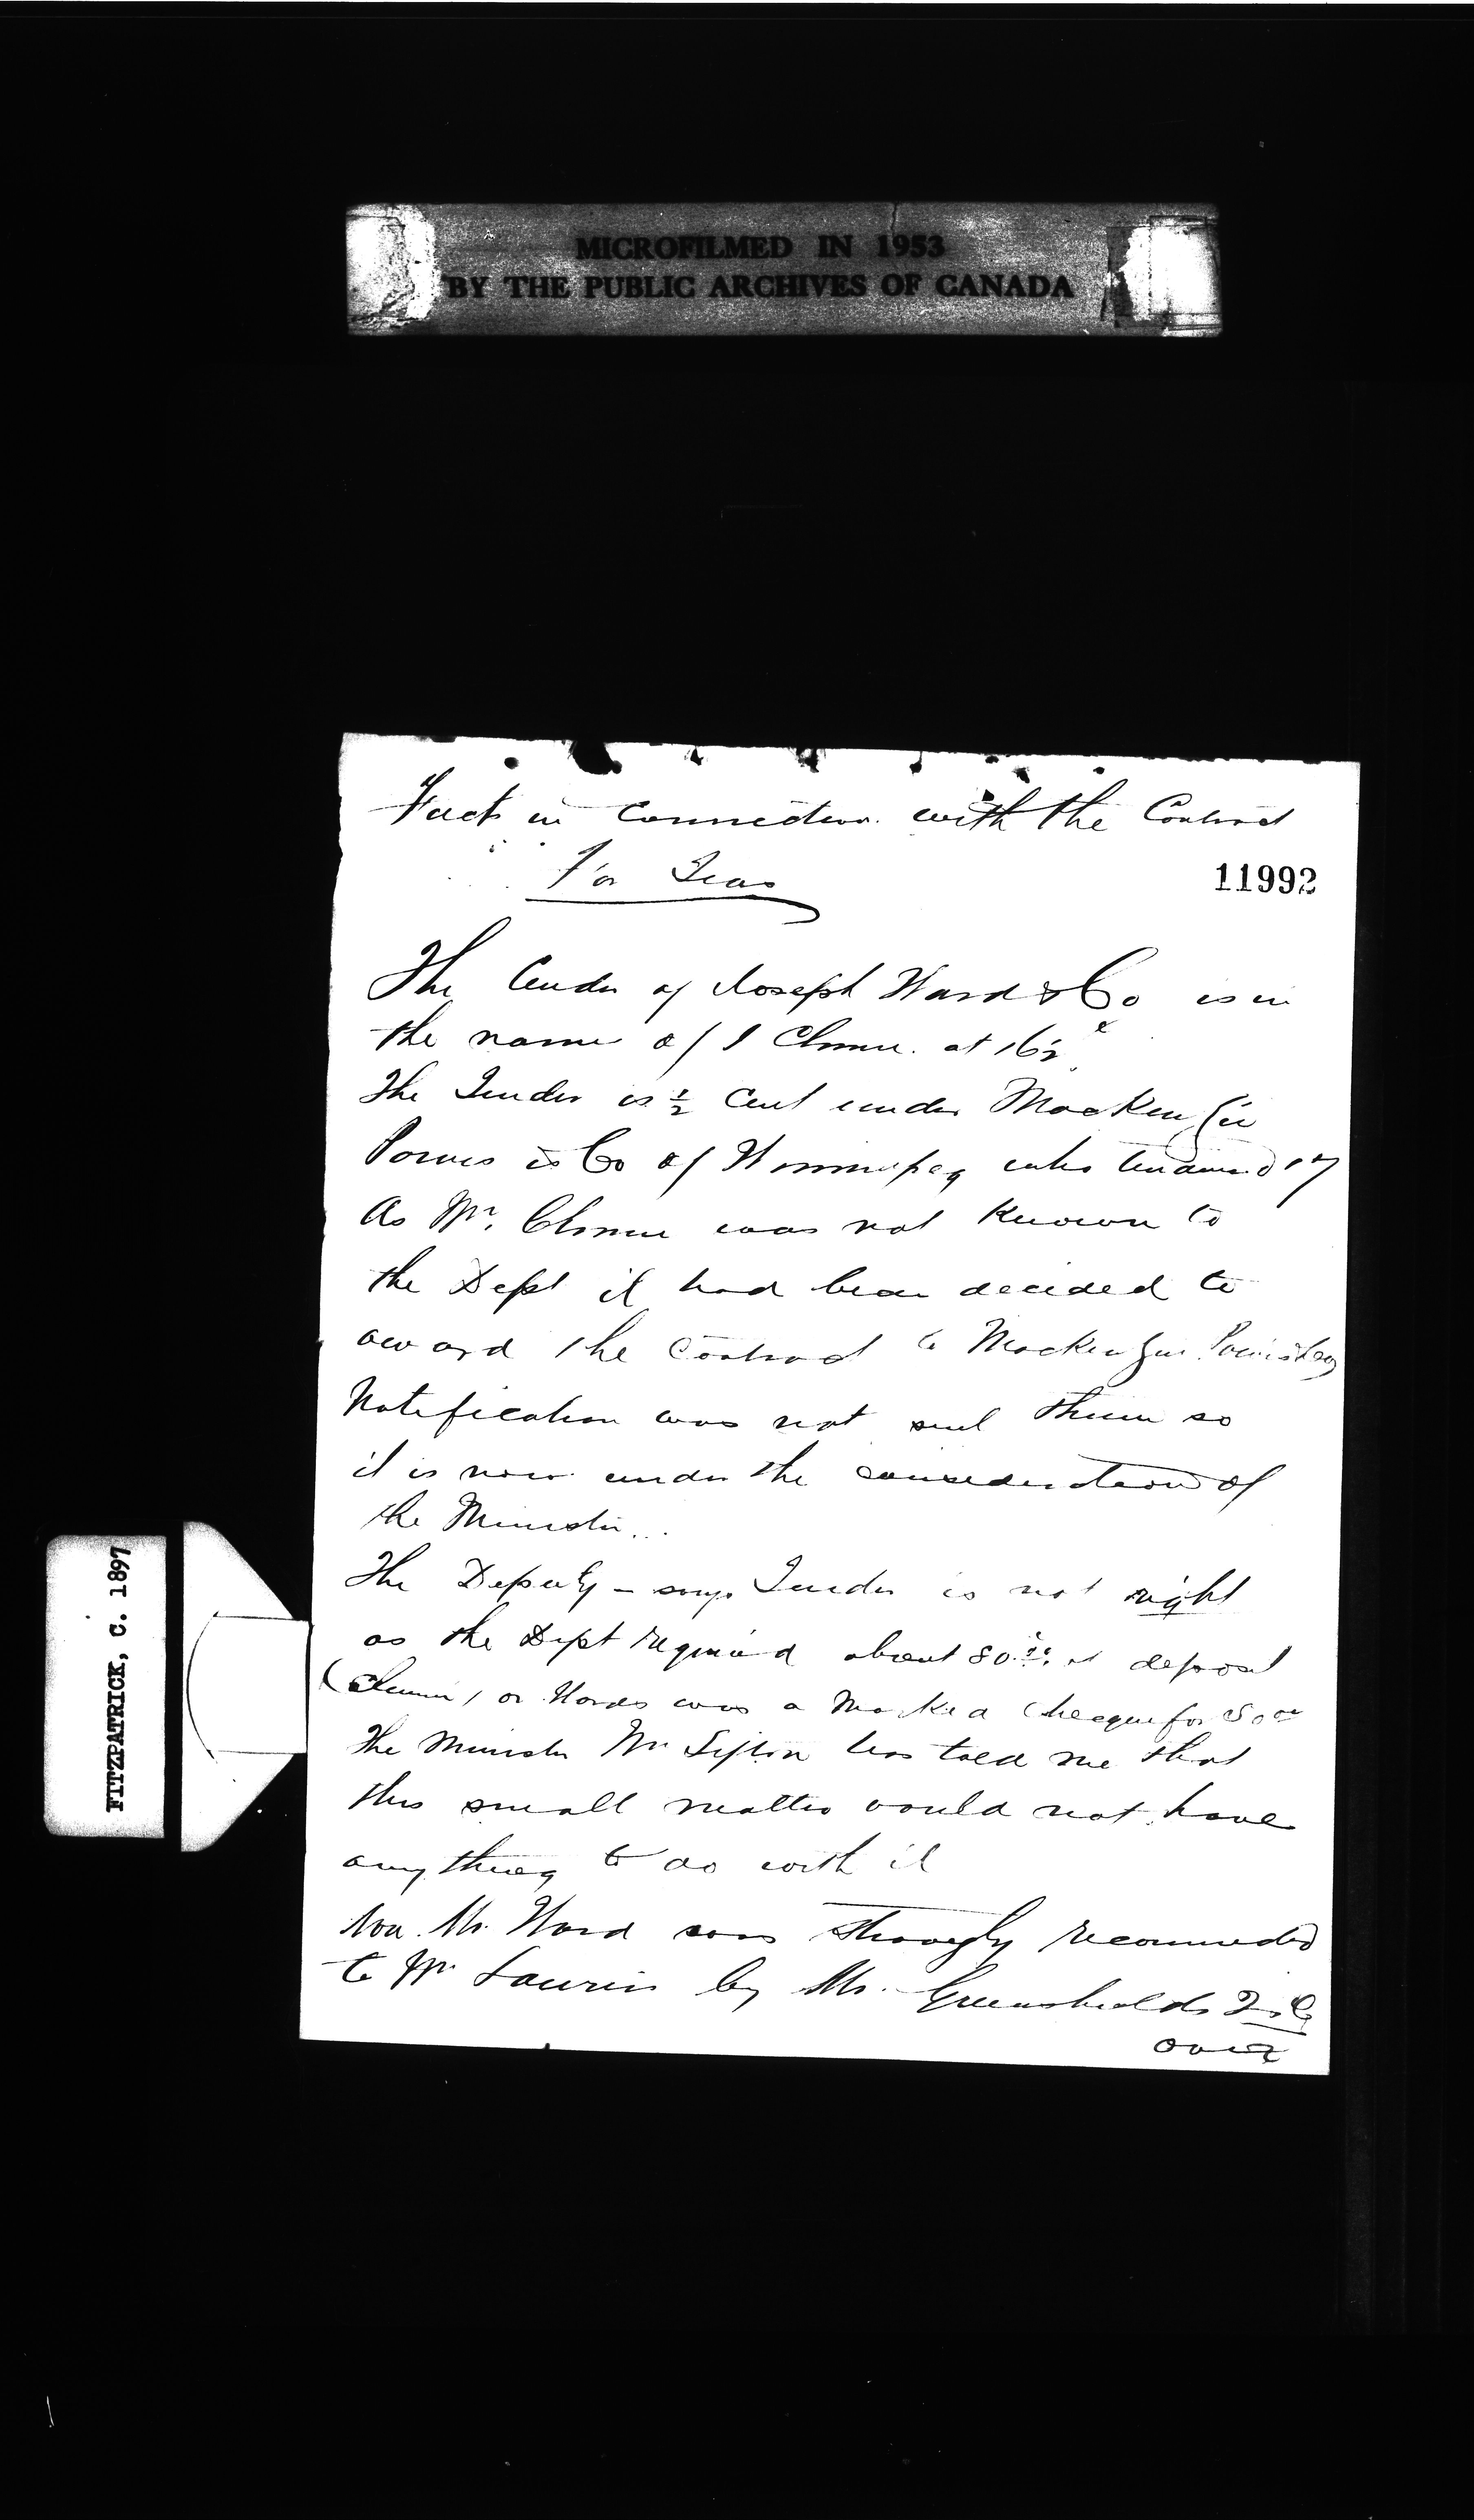 MICROFILMED IN 1953
BY THE PUBLIC ARCHIVES OF CANADA
Facts in Connection with the Contract
For Teas
11992
The Tender of Joseph Ward & Co is in
the name of J at 16½ c
The Tender is ½ Cent under MacKenzie
Powis & Co of Winnipeg who tendered 17
As Mr. was not Known to
the Dept it had been decided to
award the Contract to Mackenzie Powis & Co
Notification was not sent them so
it is now under the consideration of
the Minister.
The Deputy - says Tender is not right
as the Dept required about 80 deposit
or Wards was a Marked Cheque for 50 00
The Minister Mr Sifton has told me that
this small matter would not have
anything to do with it
Mr. Ward was strongly recommeded
to Mr Laurier by Mr. Greenshields Q.C.
over
FITZPATRICK, C. 1897